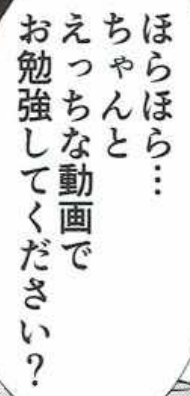 ほらほら…
ちゃんと
えっちな動画で
お勉強してください？